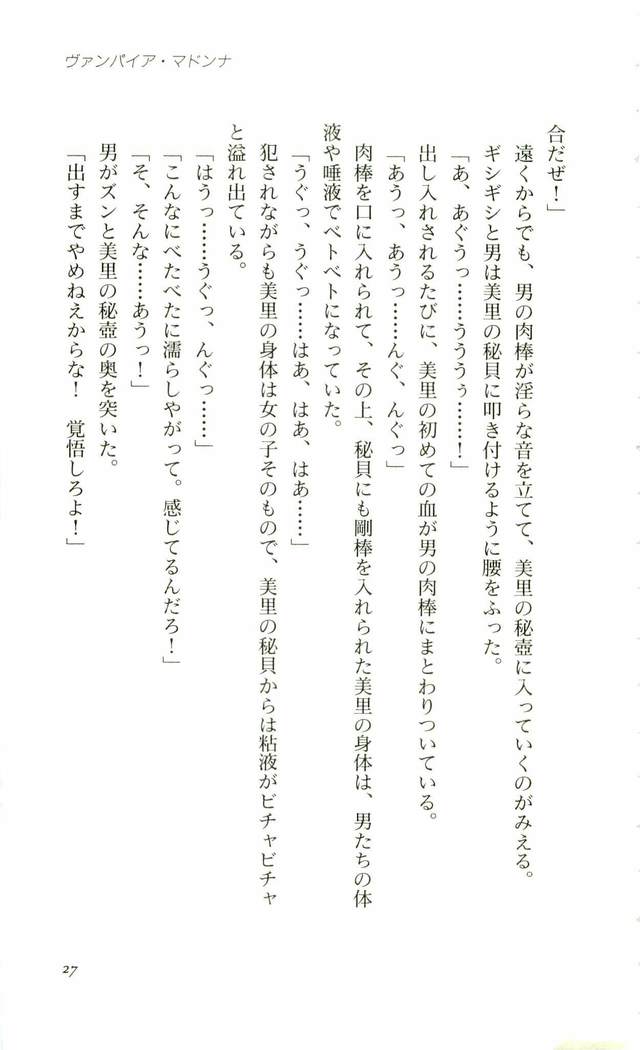 ヴァンパイア・マドンナ
合だぜ！」
遠くからでも、男の肉棒が淫らな音を立てて、美里の秘壺に入っていくのがみえる。
ギシギシと男は美里の秘貝に叩き付けるように腰をふった。
「あ、あぐうっ……うううぅ……！」
出し入れされるたびに、美里の初めての血が男の肉棒にまとわりついている。
「あうっ、あうっ……んぐ、んぐっ」
肉棒を口に入れられて、その上、秘貝にも剛棒を入れられた美里の身体は、男たちの体
液や唾液でベトベトになっていた。
「うぐっ、うぐっ……はあ、はあ、はあ……」
犯されながらも美里の身体は女の子そのもので、美里の秘貝からは粘液がビチャビチャ
と溢れ出ている。
「はうっ……うぐっ、んぐっ……」
「こんなにべたべたに濡らしやがって。感じてるんだろ！」
「そ、そんな……あうっ！」
男がズンと美里の秘壺の奥を突いた。
「出すまでやめねえからな！　覚悟しろよ！」
27